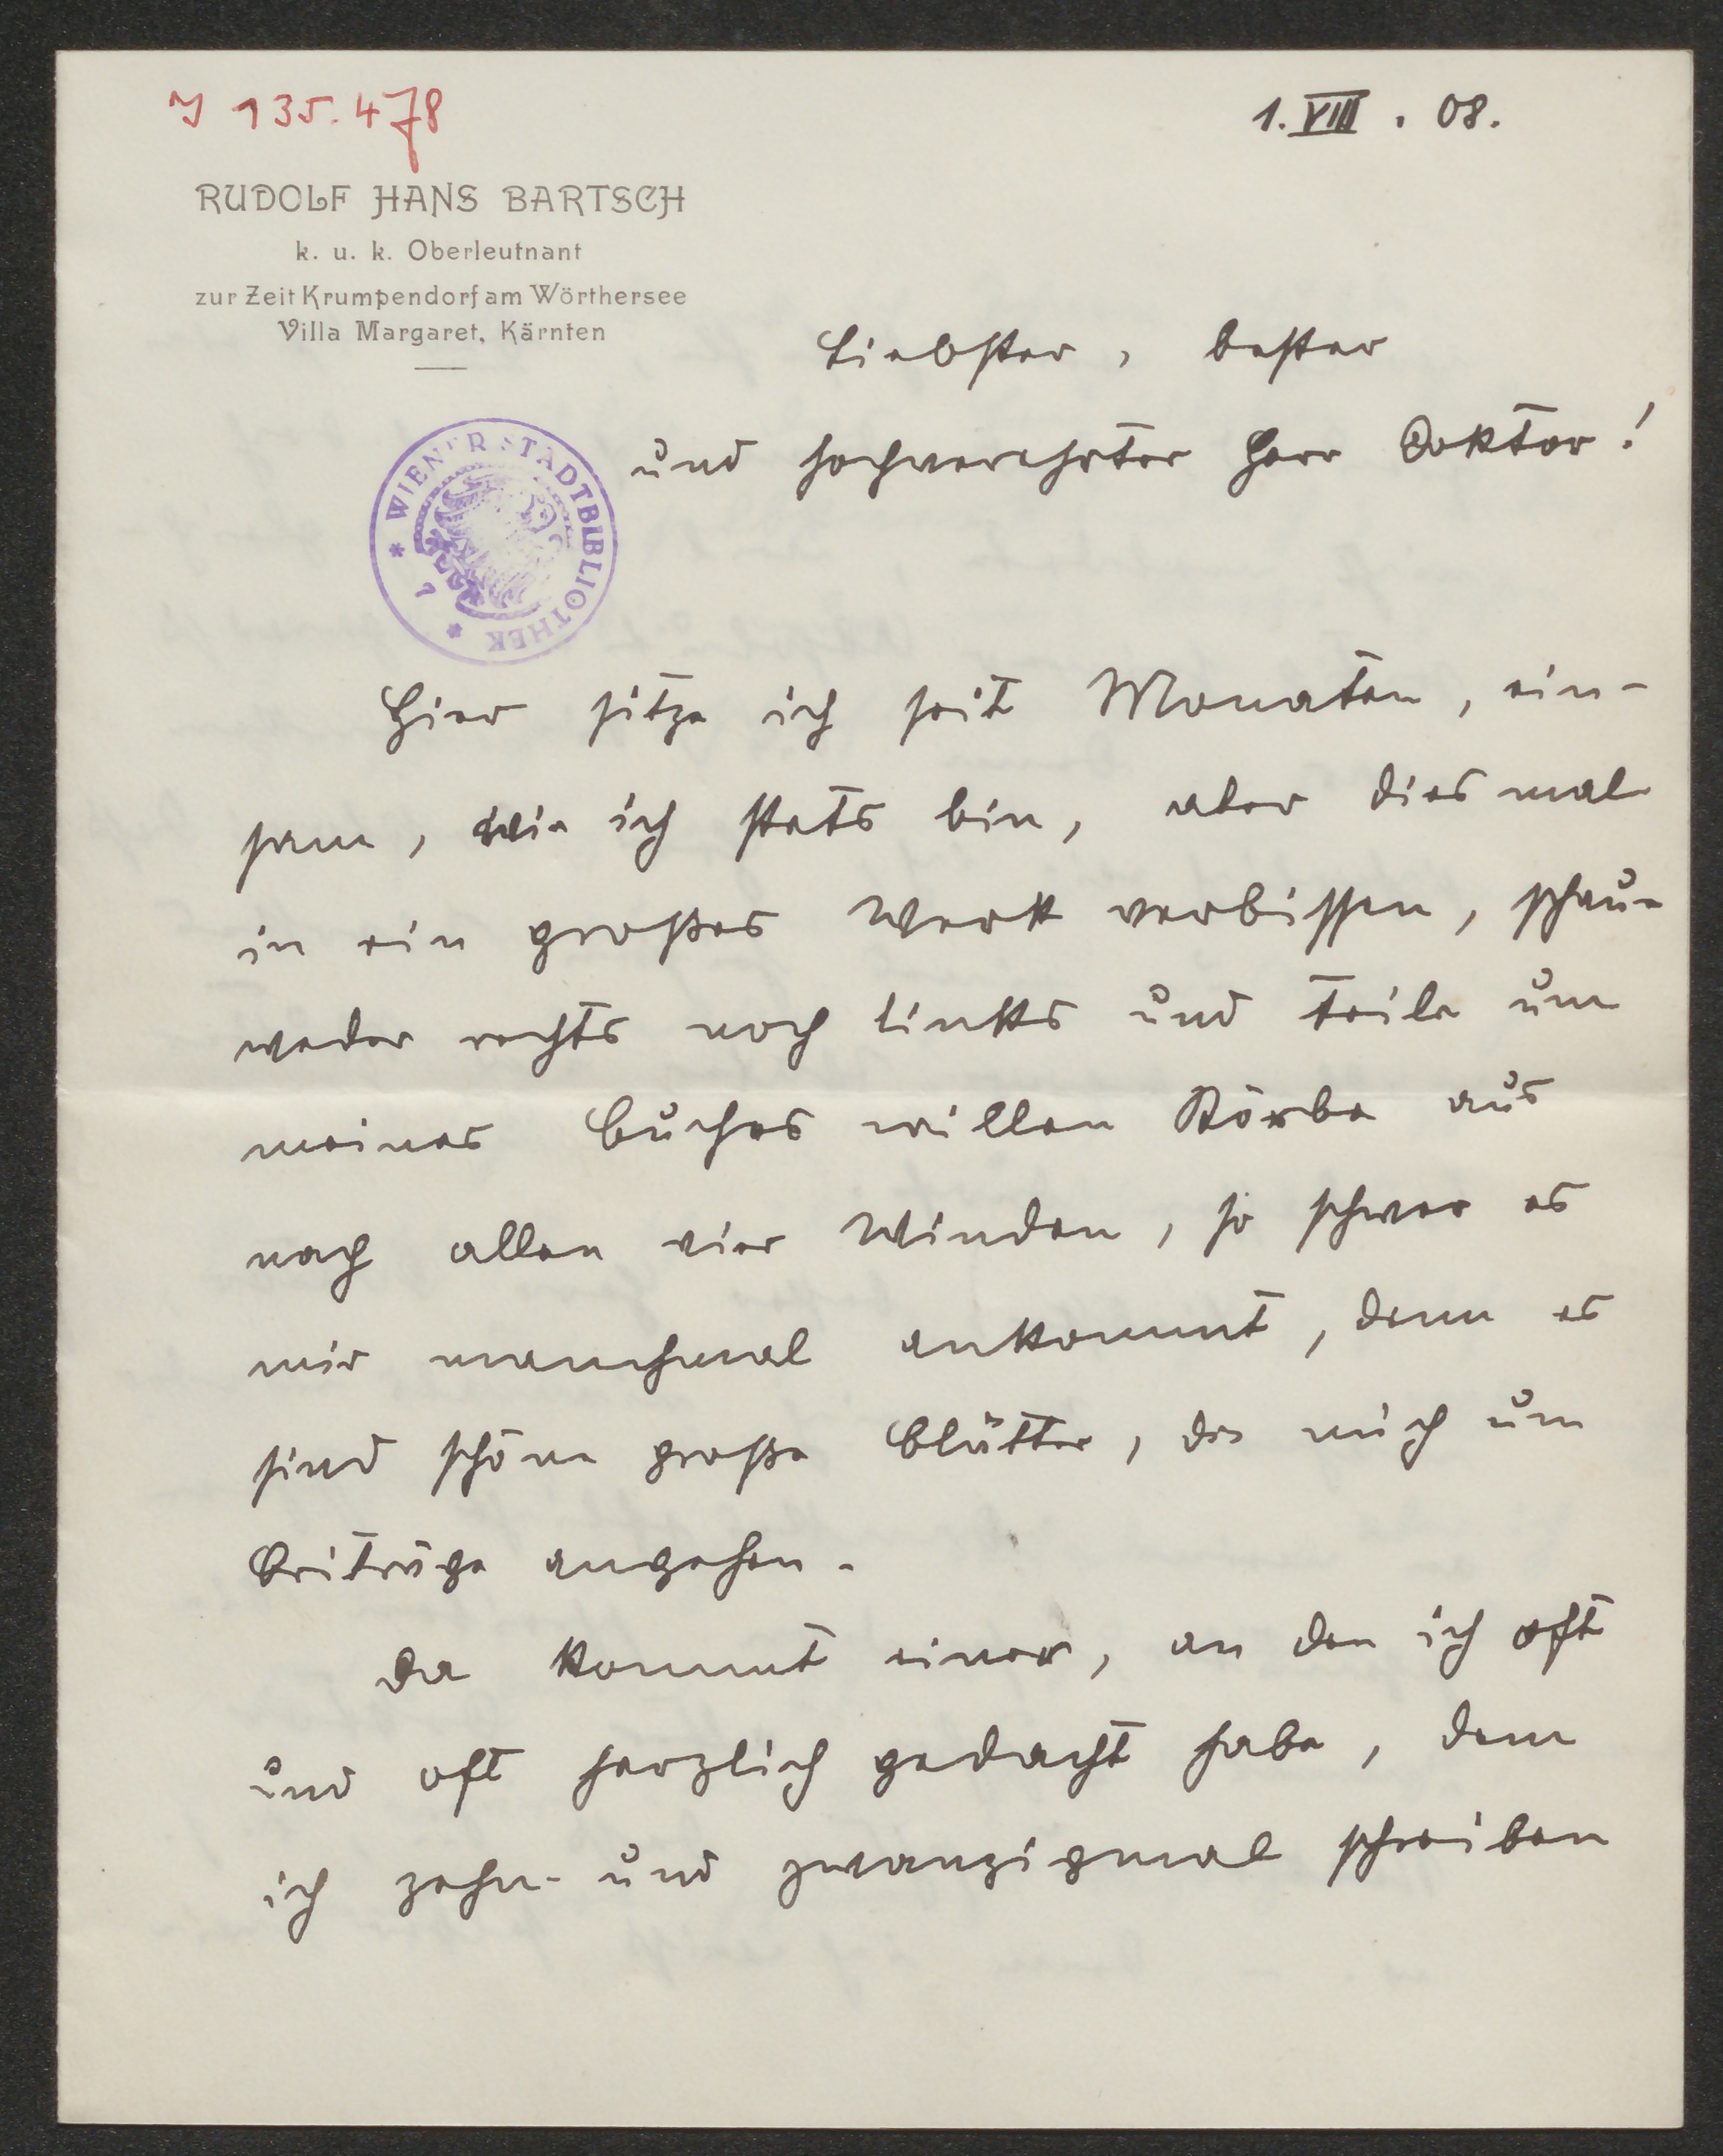 I 135.478
1. VIII. 08.
RUDOLF HANS BARTSCH
k. u. k. Oberleutnant
zur Zeit Krumpendorf am Wörthersee
Villa Margaret, Kärnten
Liebster, bester
und hochverehrter Herr Doktor!
* WIENER STADTBIBLIOTHEK *
Hier sitze ich seit Monaten, ein-
sam, wie ich stets bin, aber dies mal
in ein großes Werk verbissen, schaue
weder rechts noch links und teile um
meines Buches willen Körbe aus
nach allen vier Winden, so schwer es
mir manchmal ankommt, denn es
sind schöne große Blätter, die mich um
Beiträge angehen.
Da kommt einer, an den ich oft
und oft herzlich gedacht habe, dem
ich zehn- und zwanzigmal schreiben